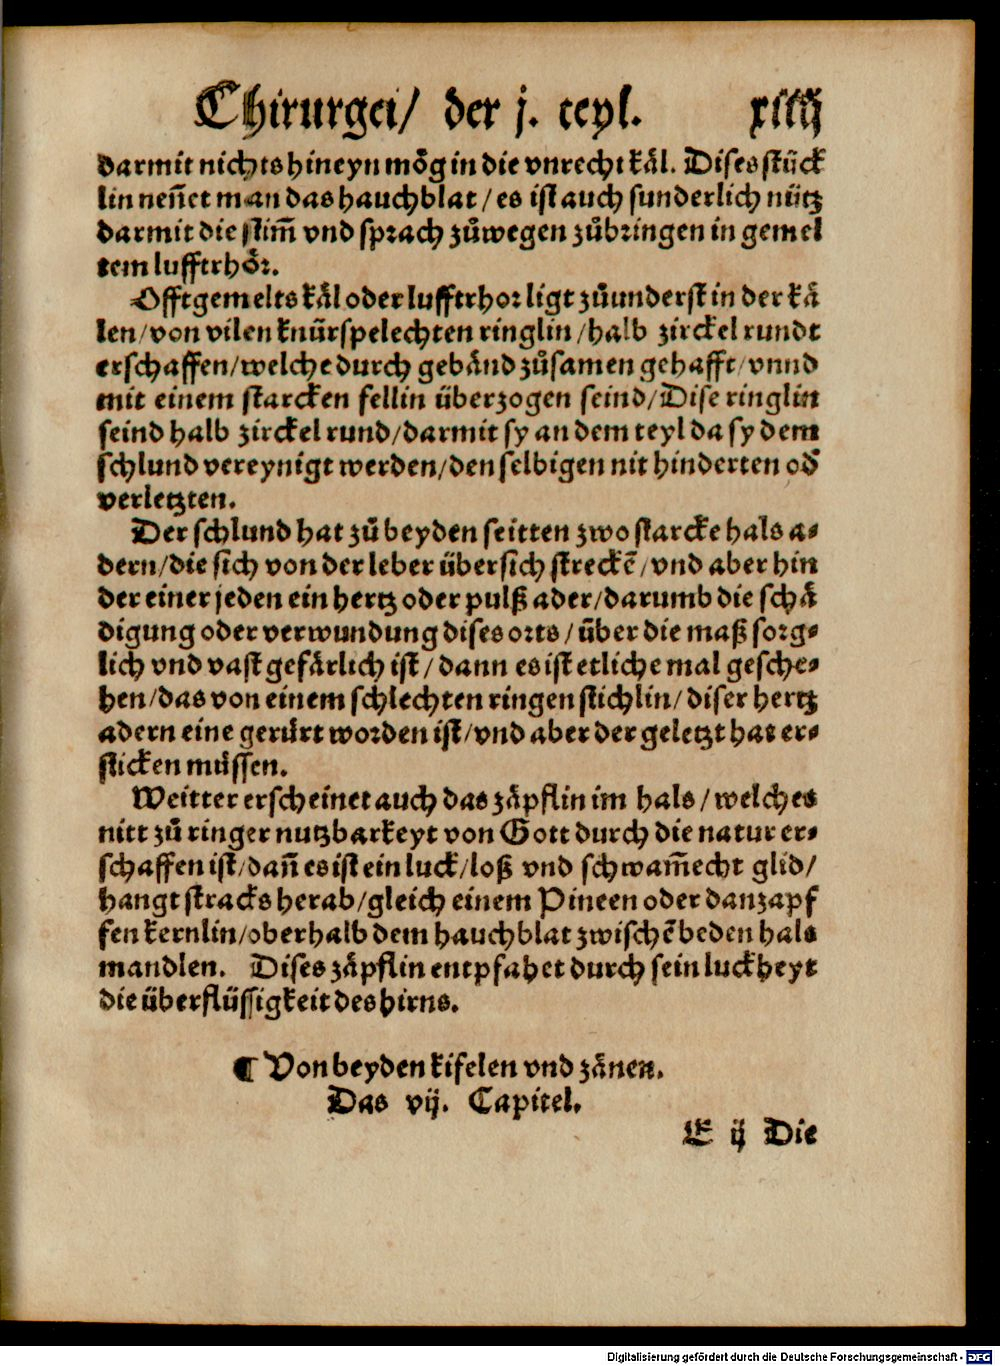 Chirurgei/ der j. teyl. xiiij
darmit nichts hineyn mög in die vnrecht käl. Dises stück
lin neñet man das hauchblat/ es ist auch sunderlich nütz
darmit die stim̃ vnd sprach zůwegen zůbringen in gemel
tem lufftrhör.
Offtgemelts käl oder lufftrhor ligt zůunderst in der kä
len/von vilen knürspelechten ringlin/halb zirckel rundt
erschaffen/welche durch gebänd zůsamen gehafft/vnnd
mit einem starcken fellin überzogen seind/Dise ringlin
seind halb zirckel rund/darmit sy an dem teyl da sy dem
schlund vereynigt werden/den selbigen nit hinderten od̕
verletzten.
Der schlund hat zů beyden seitten zwo starcke hals a-
dern/die sich von der leber übersich streckẽ/vnd aber hin
der einer jeden ein hertz oder pulß ader/darumb die schä
digung oder verwundung dises orts/ über die maß sorg-
lich vnd vast gefärlich ist/ dann es ist etliche mal gesche-
hen/das von einem schlechten ringen stichlin/ diser hertz
adern eine gerürt worden ist/vnd aber der geletzt hat er-
sticken müssen.
Weitter erscheinet auch das zäpflin im hals/welches
nitt zů ringer nutzbarkeyt von Gott durch die natur er-
schaffen ist/dañ es ist ein luck/loß vnd schwam̃echt glid/
hangt stracks herab/gleich einem Pineen oder danzapf
fen kernlin/oberhalb dem hauchblat zwischẽ beden hals
mandlen. Dises zäpflin entpfahet durch sein luckheyt
die überflüssigkeit des hirns.
¶ Von beyden kifelen vnd zänen.
Das vij. Capitel.
E ij Die
Digitalisierung gefördert durch die Deutsche Forschungsgemeinschaft - DFG